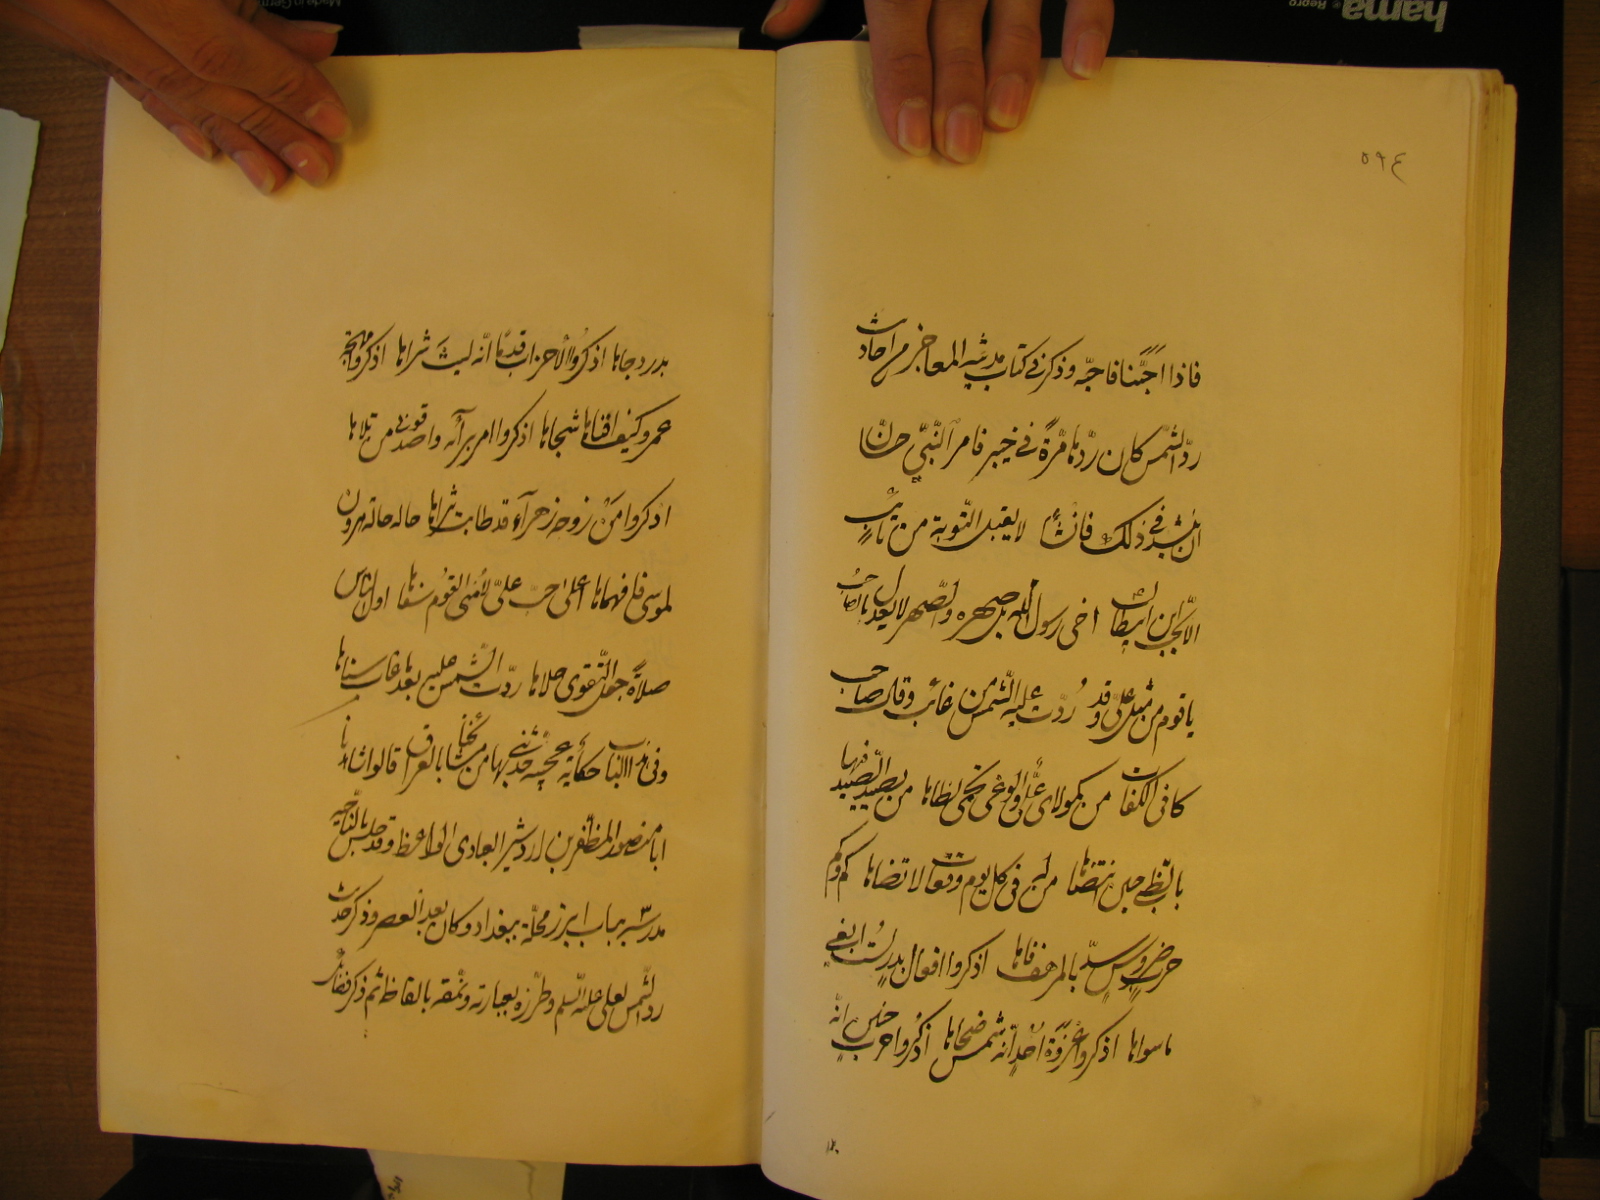 ٥٩٤
فاذا احببنا فاحبه وذكر في كتاب مدينة المعاجز من احاديث
ردّ الشمس كان ردّها مرّةً في خيبر فامر النّبيّ حسّان
ان ينشد في ذلك فانشأ لا يقبل التّوبة من تائبٍ
الّا بحبّ ابن ابيطالب اخي رسول الله بل صهره والصّهر لا يعدل بالصاحب
يا قوم من مثل عليّ وقد رُدّت عليه الشّمس من غائب وقال صاحب
كافي الكفات من كمولاي عليّ والوغى تحمي لظاها من يصيد الصّيد فيها
بالظّبي حين انتضاها من له في كل يوم وقعات لا تضاها كم وكم
حرب ضروس سدّ بالمرهف فاها اذكروا افعال بدرٍ لست ابغي
ما سواها اذكروا غزوة احدٍ انّه شمس ضحاها اذكروا حرب حنين انّه
بدر دجاها اذكروا الاحزاب قدمًا انّه ليث شراها اذكروا مهجة
عمرو كيف افناها شجاها اذكروا امر برآئة واصدقوني من تلاها
اذكروا من زوجه زهرآء قد طابت ثراها حاله حالة هرون
لموسى فافهماها أعلى حبّ عليّ لامني القوم سفاها اول الناس
صلاةً جعل التّقوى حلاها ردّت الشّمس عليه بعد ما غاب سناها
وفي هذا الباب حكاية عجيبة حدّثني بها من مشايخنا بالعراق قالوا شاهدنا
ابا منصور المظفّر بن اردشير العبادي الواعظ وقد جلس بالتاجيه
مدرسة بباب ابرز محلّة ببغداد وكان بعد العصر وذكر حديث
ردّ الشّمس لعلي عليه السّلم وطرّزه بعبارته ونمّقه بالفاظه ثم ذكر فضائل
hama
Repro
Made in Germ